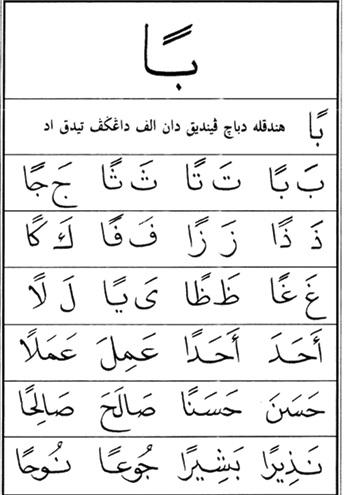 بًا
بًا هندقله دباچ ڤينديق دان الف داڠݢڤ تيدق اد
بَ بًا تَ تًا ثَ ثًا جَ جًا
ذَ ذًا زَ زًا فَ فًا كَ كًا
غَ غًا ظَ ظًا ىَ يًا لَ لًا
أَحَدَ أَحَدًا عَمِلَ عَمَلًا
حَسَنَ حَسَنًا صَالَحَ صَالِحًا
نَذِيرًا بَشِيرًا جُوعًا نُوحًا